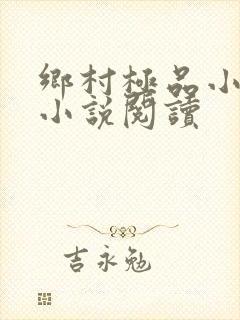 鄉村極品小
小說閱讀
吉永勉